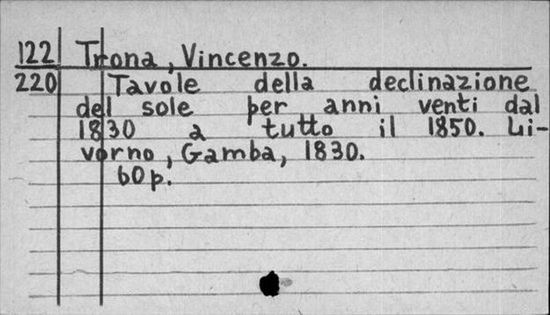 122 Trona, Vincenzo.
220 Tavole della declinazione
del sole per anni venti dal
1830 a tutto il 1850. Li-
vorno, Gamba, 1830.
60p.